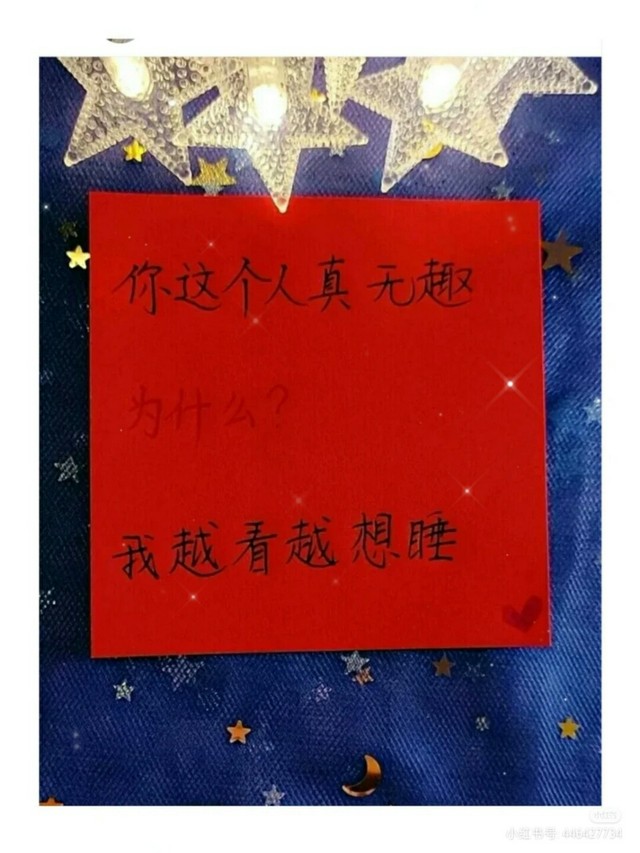 你这个人真无趣
为什么？
我越看越想睡
小红书号:448427734